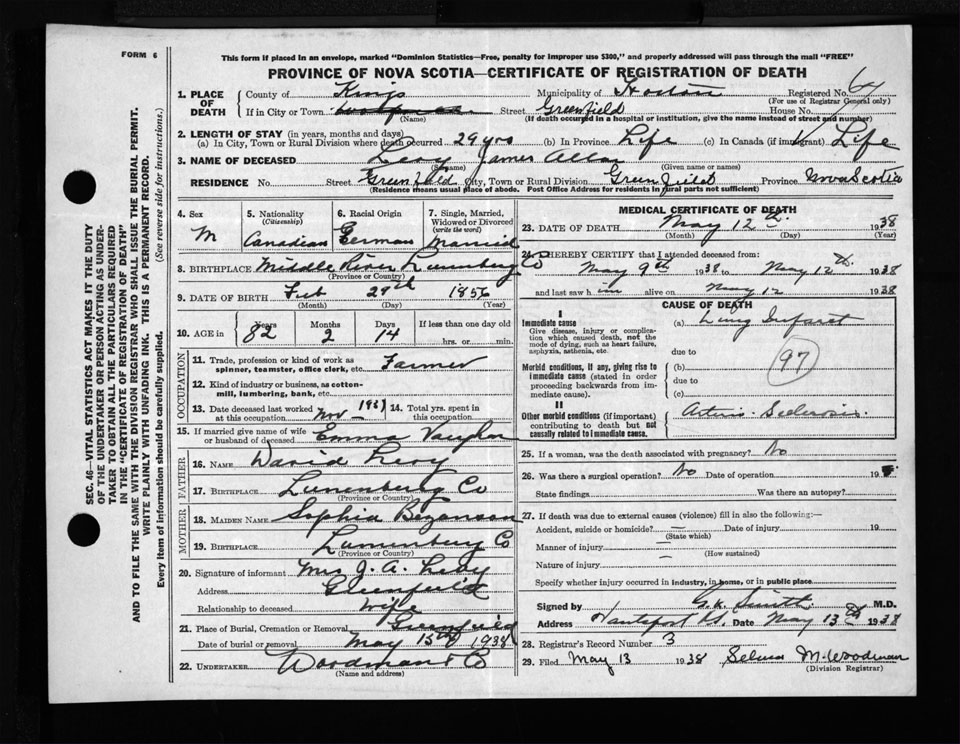 FORM 6
This form if placed in an envelope, marked "Dominion Statistics—Free, penalty for improper use $300," and properly addressed will pass through the mail "FREE"
PROVINCE OF NOVA SCOTIA—CERTIFICATE OF REGISTRATION OF DEATH
SEC. 46—VITAL STATISTICS ACT MAKES IT THE DUTY
OF THE UNDERTAKER OR PERSON ACTING AS UNDER-
TAKER TO OBTAIN ALL THE PARTICULARS REQUIRED
IN THE "CERTIFICATE OF REGISTRATION OF DEATH"
AND TO FILE THE SAME WITH THE DIVISION REGISTRAR WHO SHALL ISSUE THE BURIAL PERMIT.
WRITE PLAINLY WITH UNFADING INK. THIS IS A PERMANENT RECORD.
Every item of information should be carefully supplied. (See reverse side for instructions.)
1. PLACE OF DEATH County of Kings Municipality of Horton Registered No. 64
(For use of Registrar General only)
If in City or Town Street Greenfield House No.
(Name) (If death occurred in a hospital or institution, give the name instead of street and number)
2. LENGTH OF STAY (in years, months and days)
(a) In City, Town or Rural Division where death occurred 29 yrs (b) In Province Life (c) In Canada (if immigrant) Life
3. NAME OF DECEASED Levy James Allan
(Surname) (Given name or names)
RESIDENCE No. Street Greenfield City, Town or Rural Division Greenfield Province Nova Scotia
(Residence means usual place of abode. Post Office Address for residents in rural parts not sufficient)
4. Sex M
5. Nationality (Citizenship) Canadian
6. Racial Origin German
7. Single, Married, Widowed or Divorced (write the word) Married
8. BIRTHPLACE Middle River Lunenburg Co
(Province or Country)
9. DATE OF BIRTH Feb 29th 1856
(Month) (Day) (Year)
10. AGE in Years 82 Months 2 Days 14 If less than one day old hrs. or min.
OCCUPATION
11. Trade, profession or kind of work as spinner, teamster, office clerk, etc. Farmer
12. Kind of industry or business, as cotton-mill, lumbering, bank, etc.
13. Date deceased last worked at this occupation Nov 1937 14. Total yrs. spent in this occupation
15. If married give name of wife or husband of deceased Emma Vaughan
FATHER
16. NAME David Levy
17. BIRTHPLACE Lunenberg Co
(Province or Country)
MOTHER
18. MAIDEN NAME Sophia Bezanson
19. BIRTHPLACE Lunenburg Co
(Province or Country)
20. Signature of informant Mrs J. A. Levy
Address Greenfield
Relationship to deceased wife
21. Place of Burial, Cremation or Removal Greenfield
Date of burial or removal May 15th 1938
22. UNDERTAKER Woodman & Co
(Name and address)
MEDICAL CERTIFICATE OF DEATH
23. DATE OF DEATH May 12th 1938
(Month) (Day) (Year)
24. I HEREBY CERTIFY that I attended deceased from:
May 9th 1938 to May 12th 1938
and last saw him alive on May 12 1938
CAUSE OF DEATH
I
Immediate cause
Give disease, injury or complica-
tion which caused death, not the
mode of dying, such as heart failure,
asphyxia, asthenia, etc.
(a) Lung Infarct
due to
Morbid conditions, if any, giving rise to
immediate cause (stated in order
proceeding backwards from im-
mediate cause).
(b)
due to
(c)
97
II
Other morbid conditions (if important)
contributing to death but not
causally related to immediate cause.
Arterio-Sclerosis
25. If a woman, was the death associated with pregnancy? No
26. Was there a surgical operation? No Date of operation 19
State findings Was there an autopsy?
27. If death was due to external causes (violence) fill in also the following:—
Accident, suicide or homicide? — Date of injury 19
(State which)
Manner of injury —
(How sustained)
Nature of injury —
Specify whether injury occurred in industry, in home, or in public place
Signed by G.K. Smith M.D.
Address Hantsport N.S. Date May 13th 1938
28. Registrar's Record Number 3
29. Filed May 13 1938 Selma M. Woodman
(Division Registrar)